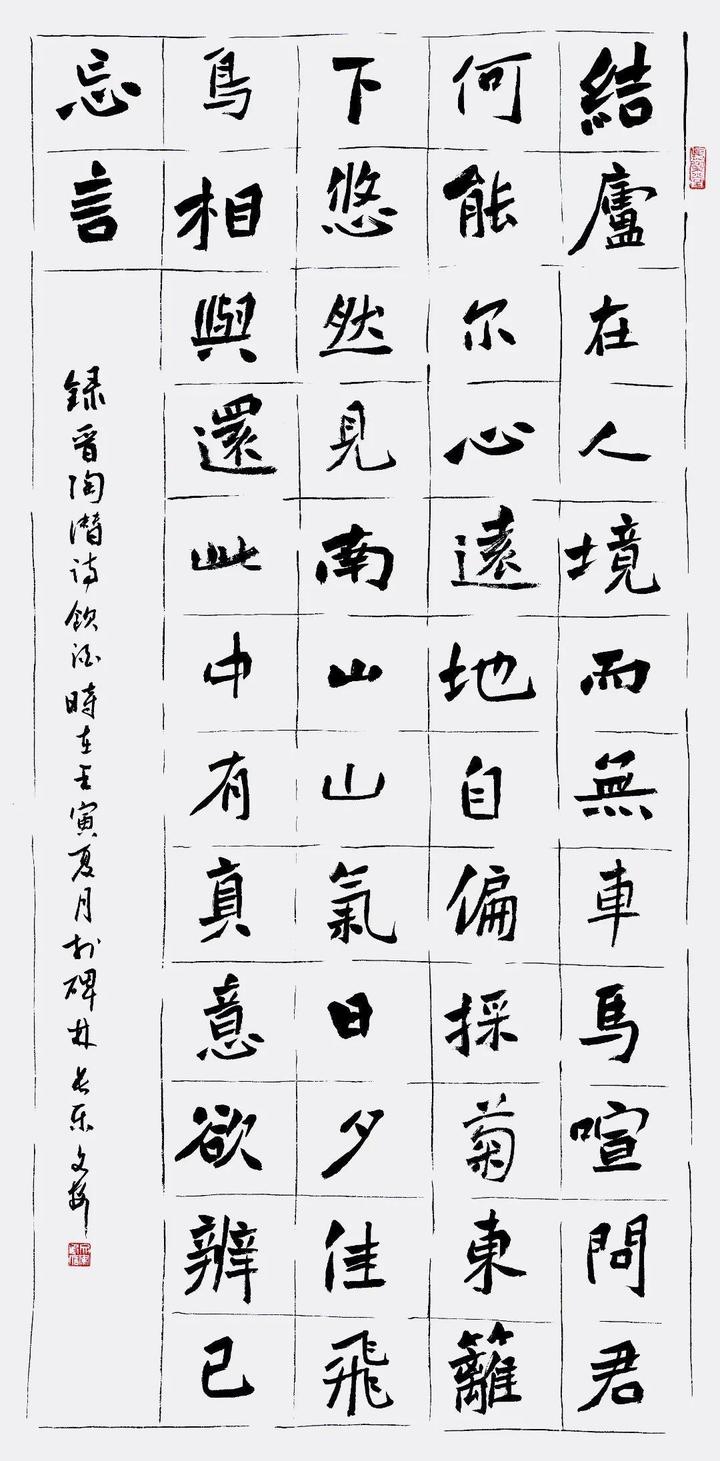 結廬在人境而無車馬喧問君
何能尔心遠地自偏採菊東籬
下悠然見南山山氣日夕佳飛
鳥相與還此中有真意欲辨已
忘言
録晋陶潛诗飲酒時在壬寅夏月於碑林长乐文